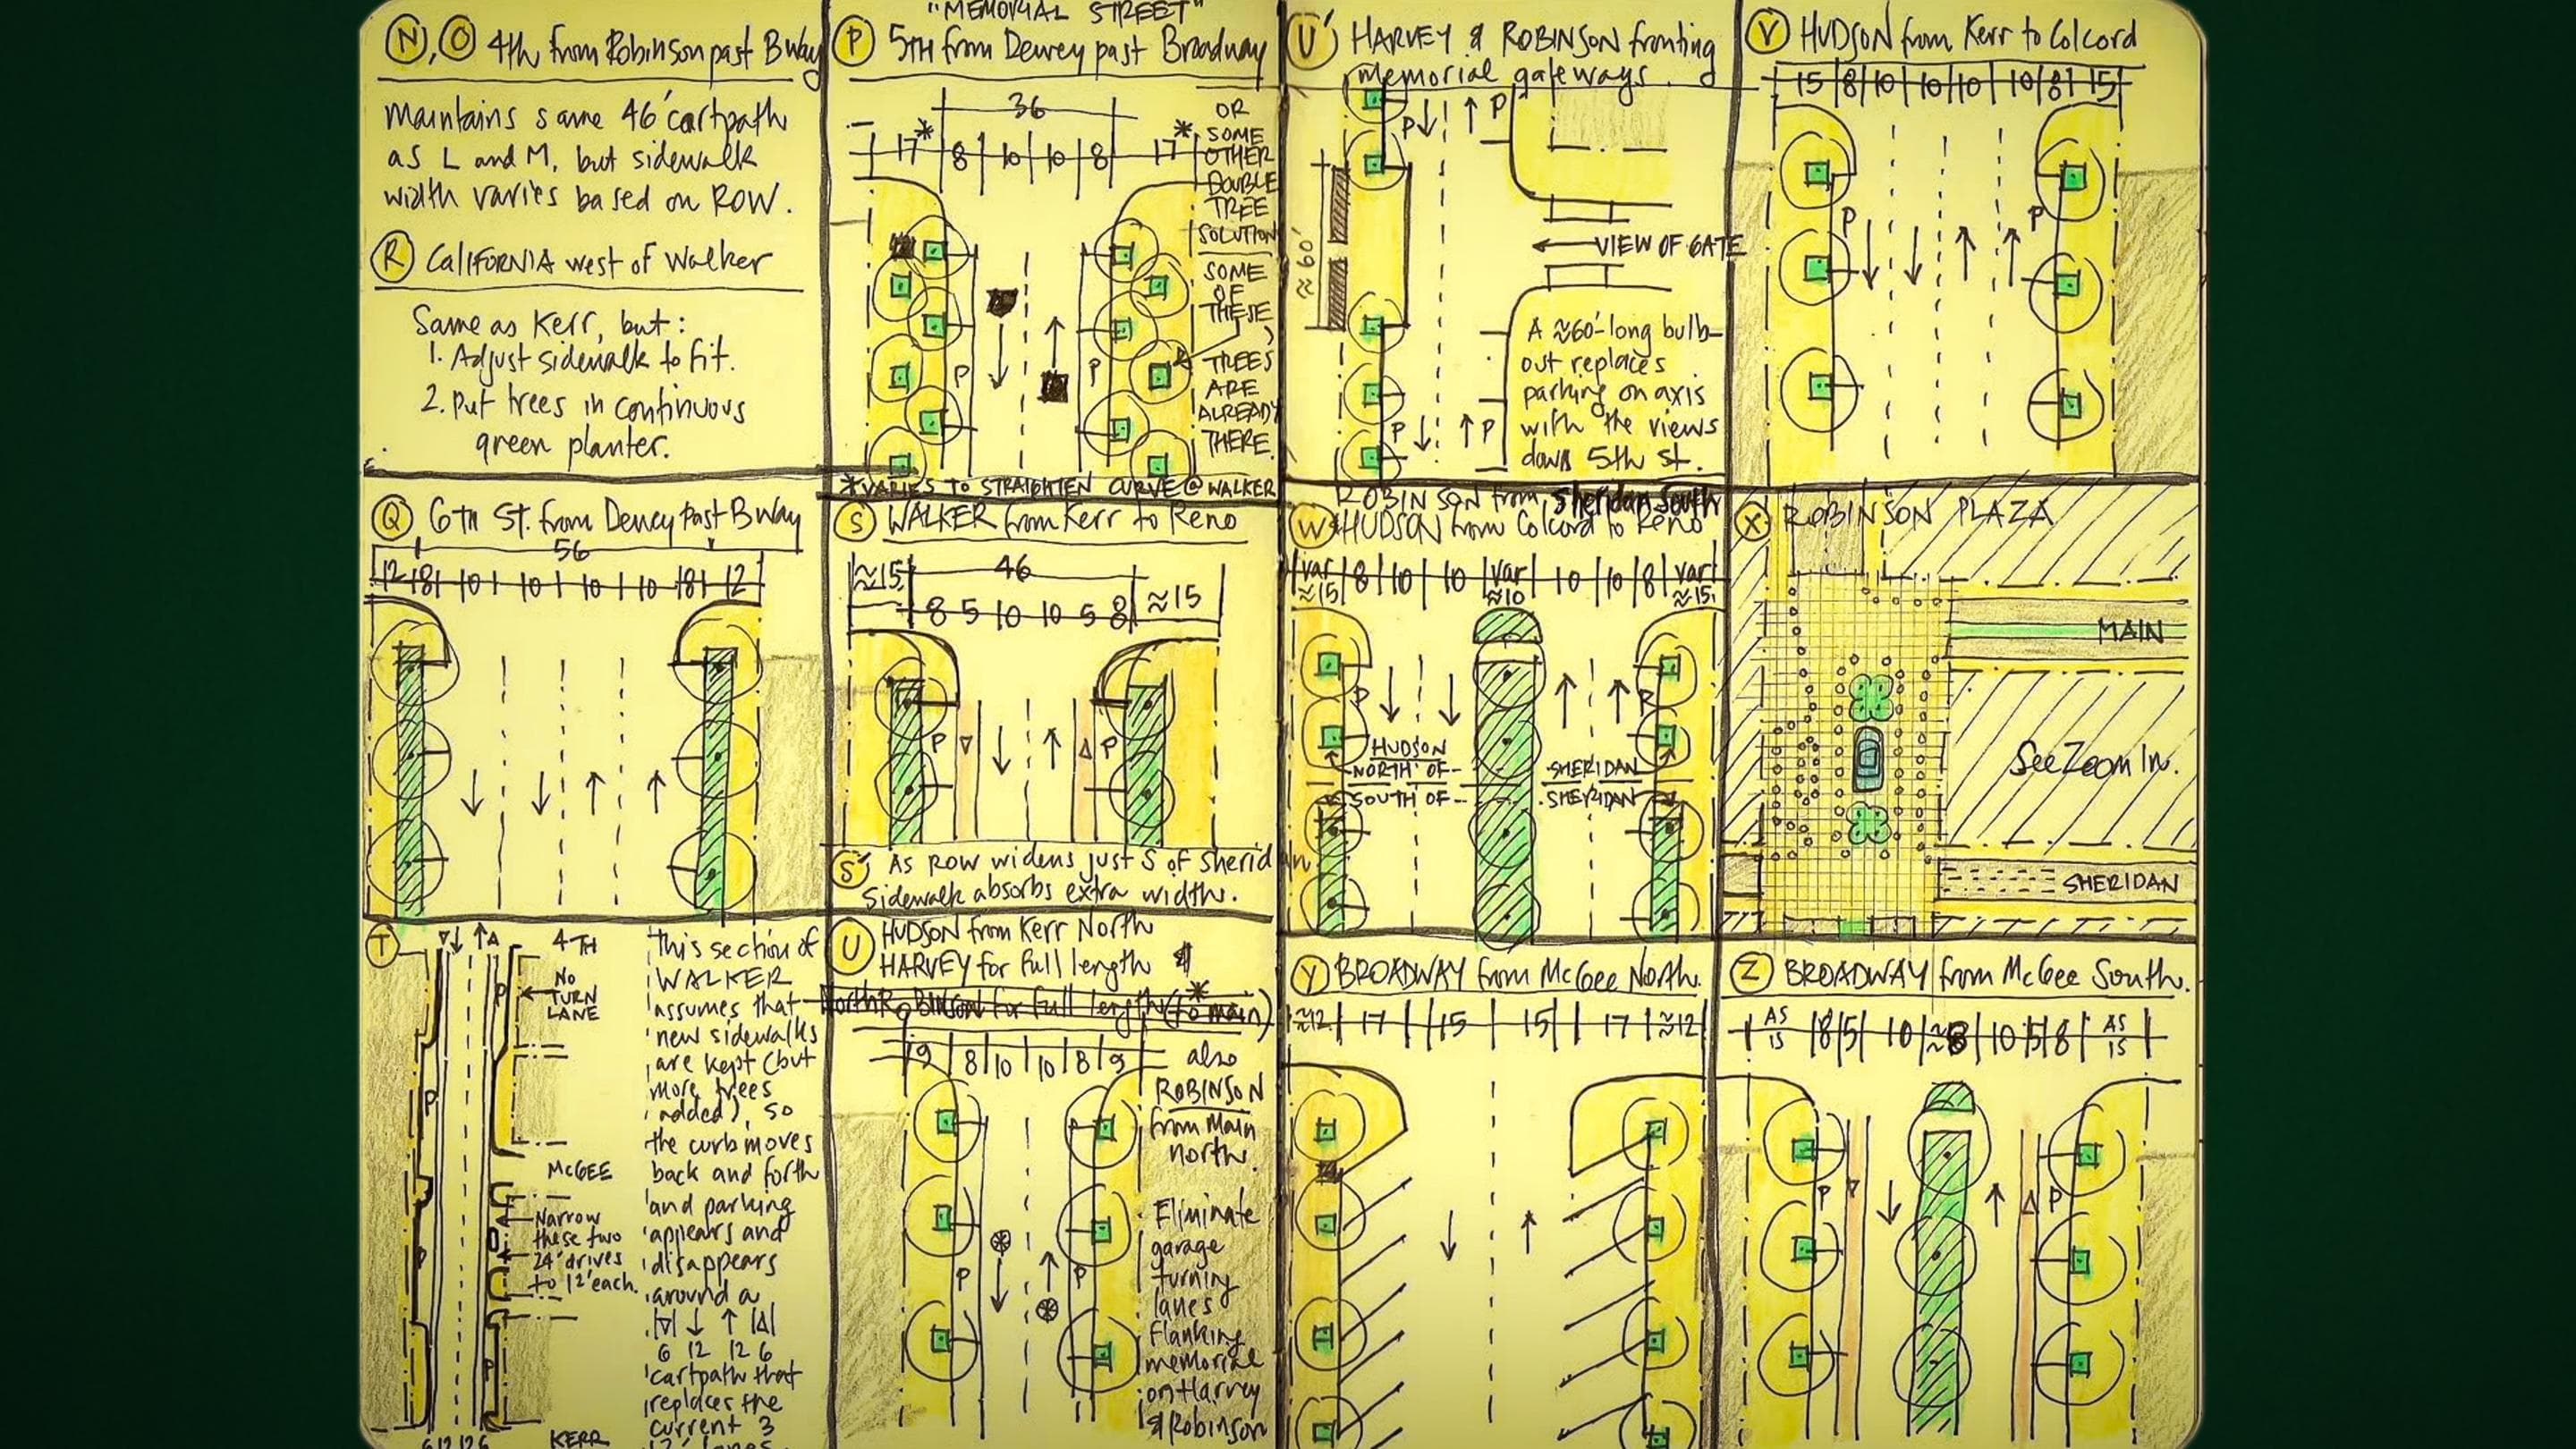 N, O 4th from Robinson past Bway
maintains same 46' cartpath
as L and M, but sidewalk
width varies based on ROW.
R CALIFORNIA west of Walker
Same as Kerr, but:
1. Adjust sidewalk to fit.
2. Put trees in continuous
green planter.
"MEMORIAL STREET"
P 5TH from Dewey past Broadway
36
17* 8 10 10 8 17*
OR
SOME
OTHER
DOUBLE
TREE
SOLUTION
SOME
OF
THESE
TREES
ARE
ALREADY
THERE.
P P
*VARIES TO STRAIGHTEN CURVE @ WALKER
U' HARVEY & ROBINSON fronting
memorial gateways.
P P
≈60'
VIEW OF GATE
A ≈60'-long bulb-
out replaces
parking on axis
with the views
down 5th st.
P P
V HUDSON from Kerr to Colcord
15 8 10 10 10 10 8 15
P P
Q 6TH ST. from Dewey Past Bway
56
12 8 10 10 10 10 8 12
S WALKER from Kerr to Reno
≈15 46 ≈15
8 5 10 10 5 8
P P
S' AS ROW widens just S of Sheridan
Sidewalk absorbs extra width.
ROBINSON from Sheridan South
W & HUDSON from Colcord to Reno
var 8 10 10 var 10 10 8 var
≈15 ≈10 ≈15
P P
HUDSON
NORTH OF -- SHERIDAN
SOUTH OF -- SHERIDAN
X ROBINSON PLAZA
MAIN
See Zoom In.
SHERIDAN
T
4TH
NO
TURN
LANE
P
P
McGEE
Narrow
these two
24' drives
to 12' each.
P
P
KERR
6 12 12 6
This section of
WALKER
assumes that
new sidewalks
are kept (but
more trees
added), so
the curb moves
back and forth
and parking
appears and
disappears
around a
6 12 12 6
cartpath that
replaces the
current 3
12' lanes.
U HUDSON from Kerr North
HARVEY for full length &
North Robinson for full length (to main)*
9 8 10 10 8 9
also
ROBINSON
from Main
north.
P P
Eliminate
garage
turning
lanes
flanking
memorial
on Harvey
& Robinson
Y BROADWAY from McGee North.
≈12 17 15 15 17 ≈12
Z BROADWAY from McGee South.
AS IS 8 5 10 ≈8 10 5 8 AS IS
P P